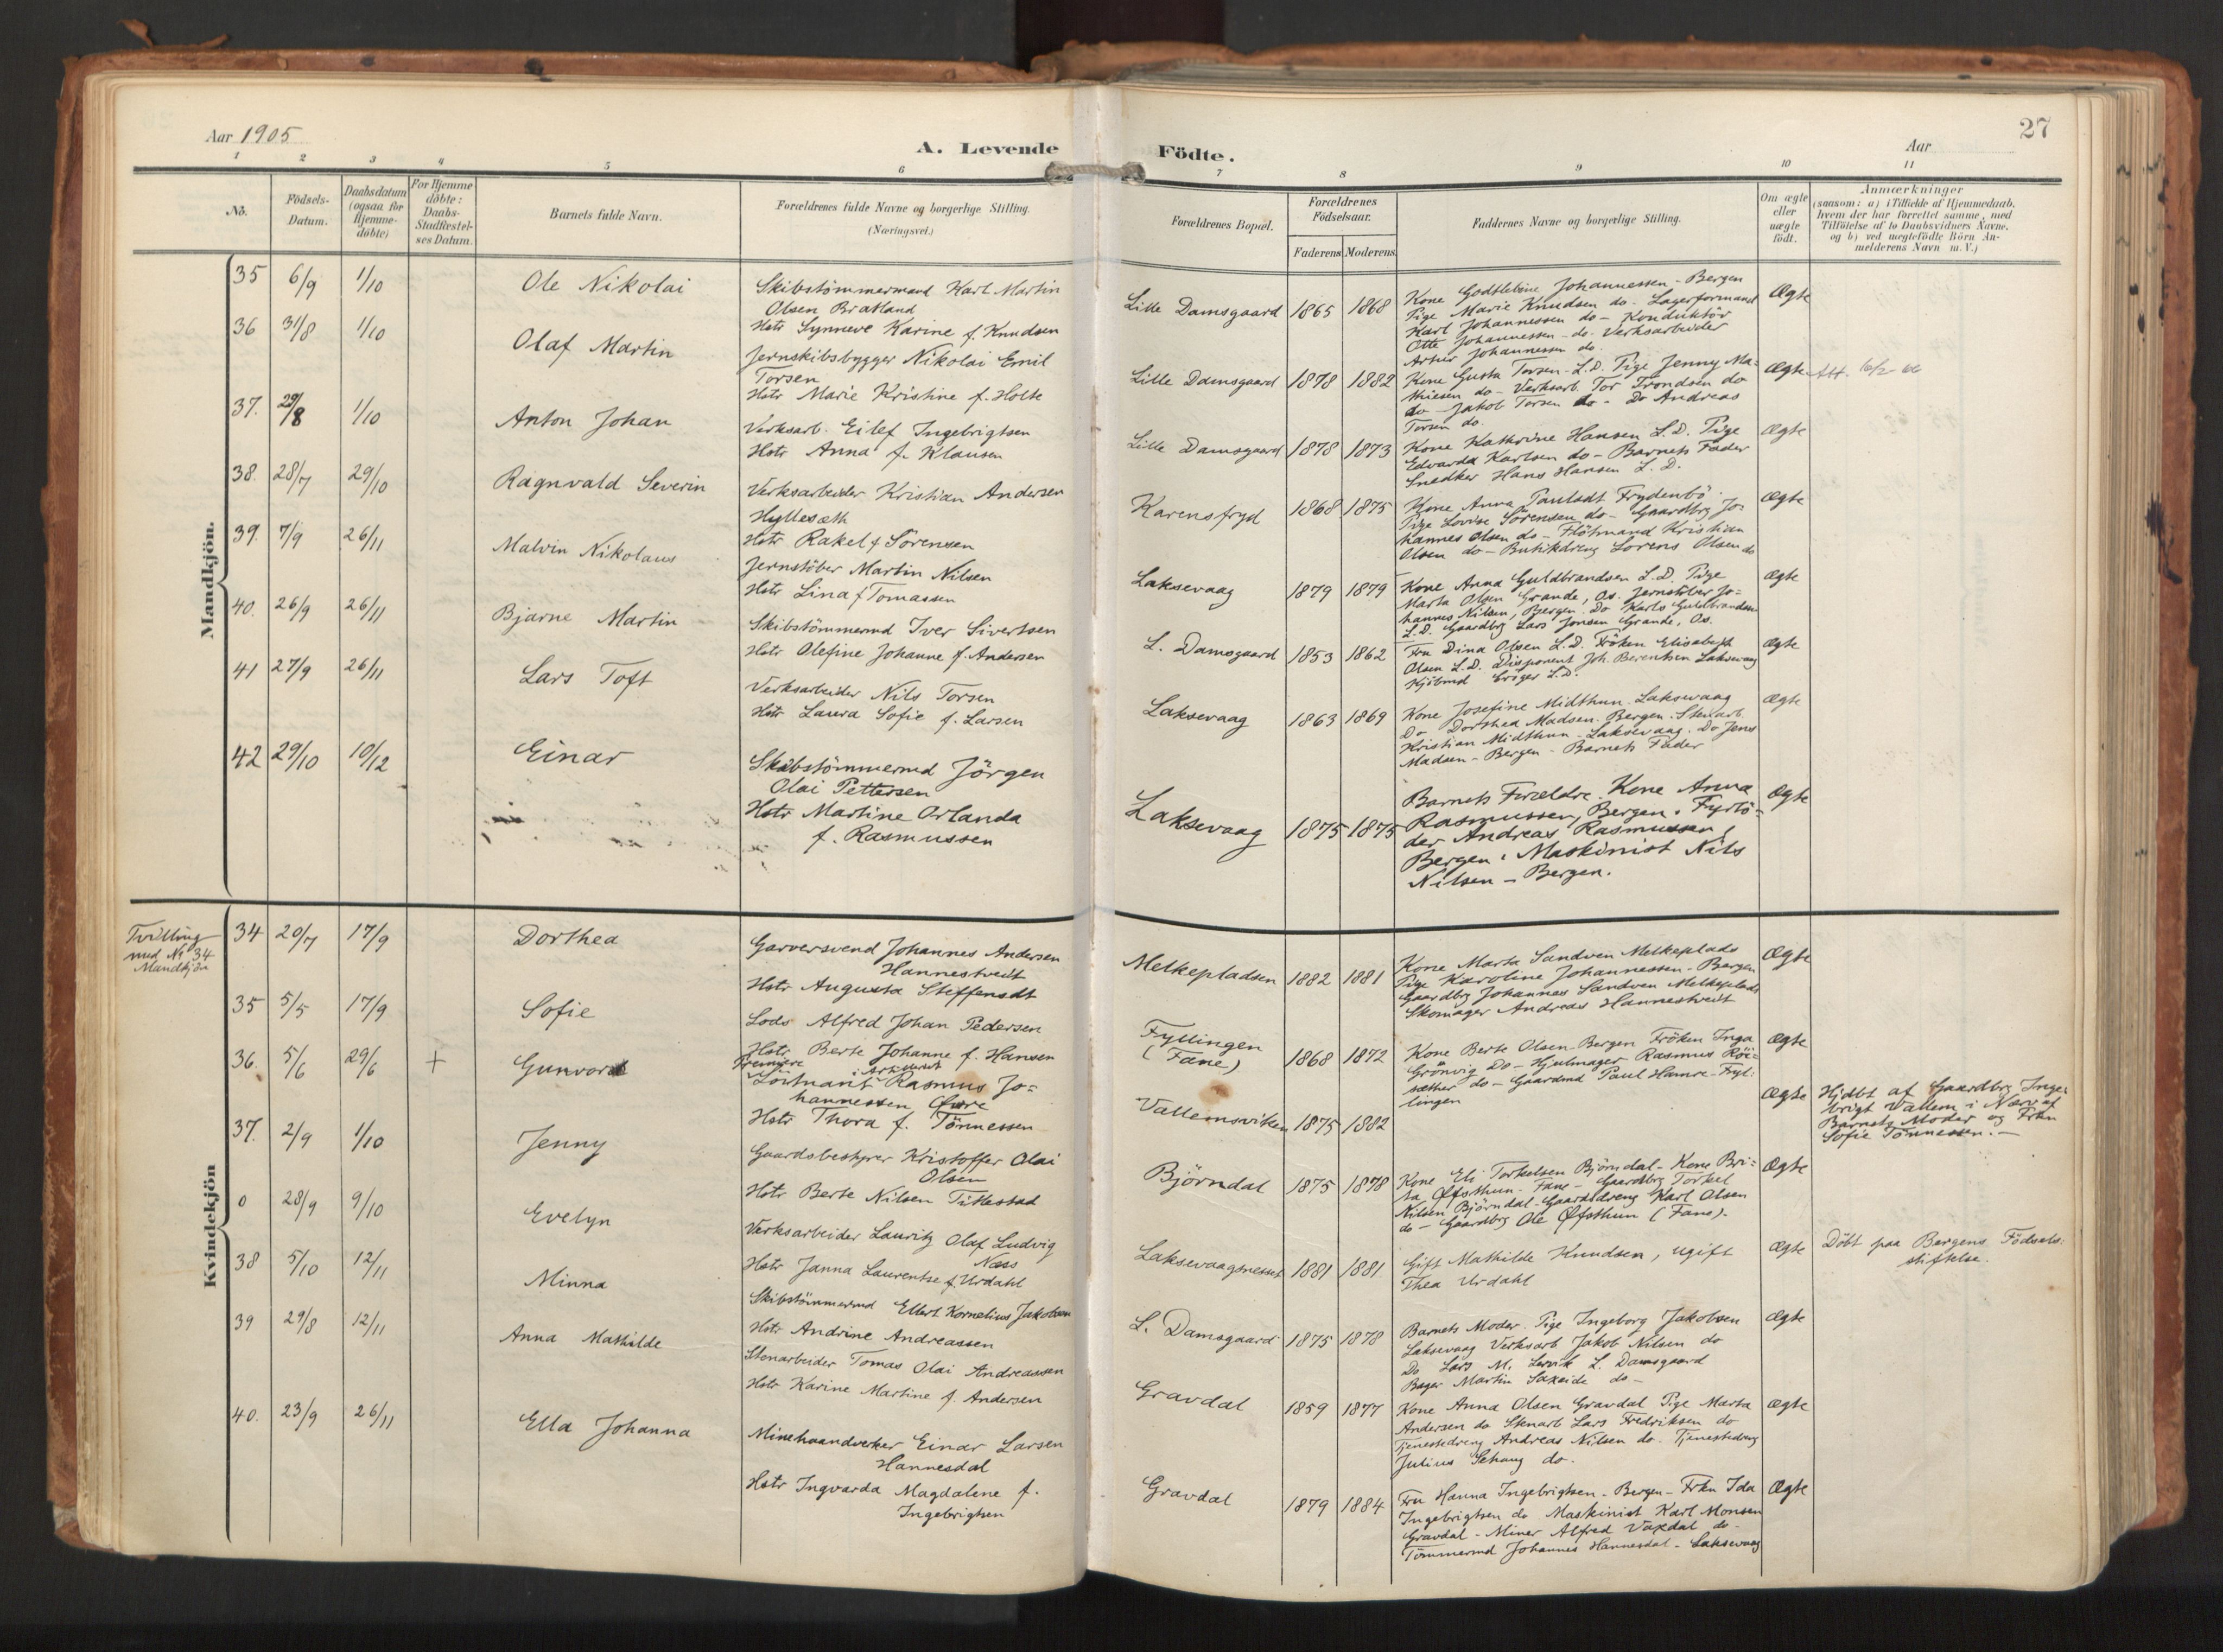 Aar 1905
A. Levende
1 2 3 4 5 6
No.
Födsels-
Datum.
Daabsdatum
(ogsaa for
Hjemme-
döbte)
For Hjemme
döbte:
Daabs-
Stadfæstel-
ses Datum.
Barnets fulde Navn.
Forældrenes fulde Navne og borgerlige Stilling.
(Næringsvei.)
Mandkjön.
35 6/9 1/10 Ole Nikolai
Skibstömmermand Karl Martin
Olsen Bratland
Hstr Synneve Karine f. Knudsen
36 31/8 1/10 Olaf Martin
Jernskibsbygger Nikolai Emil
Torsen
Hstr Marie Kristine f. Holte
37. 29/8 1/10 Anton Johan
Verksarb. Eilef Ingebrigtsen
Hstr Anna f. Klausen
38. 28/7 29/10 Ragnvald Severin
Verksarbeider Kristian Andersen
Hyllesæth
Hstr Rakel f Sörensen
39. 7/9 26/11 Malvin Nikolaus
Jernstöber Martin Nilsen
Hstr Lina f Tomassen
40. 26/9 26/11 Bjarne Martin
Skibstömmermd Iver Sivertsen
Hstr Olefine Johanne f. Andersen
41 27/9 26/11 Lars Toft
Verksarbeider Nils Torsen
Hstr Laura Sofie f. Larsen
42 29/10 10/12 Einar
Skibstömmermd Jörgen
Olai Pettersen
Hstr Martine Orlanda
f. Rasmussen
Kvindekjön
Tvilling
med No 34
Mandkjön
34 20/7 17/9 Dorthea
Garversvend Johannes Andersen
Hannestveit
Hstr Augusta Steffensdt
35 5/5 17/9 Sofie
Lods Alfred Johan Pedersen
Hstr Berte Johanne f. Hansen
36. 5/6 29/6 + Gunvor
Premiere i Artilleriet
Löitnant Rasmus Jo=
hannessen Øvre
Hstr Thora f. Tönnessen
37. 2/9 1/10 Jenny
Gaardsbestyrer Kristoffer Olai
Olsen
Hstr Berte Nilsen Titlestad
0 28/9 9/10 Evelyn
Verksarbeider Lauritz Olaf Ludvig
Næss
Hstr Janna Laurentse f. Urdahl
38 5/10 12/11 Minna
Skibstömmermd Ellert Kornelius Jakobsen
Hstr Andrine Andreassen
39 29/8 12/11 Anna Mathilde
Stenarbeider Tomas Olai Andreassen
Hstr Karine Martine f. Andersen
40. 23/9 26/11 Ella Johanna
Minehaandverker Einar Larsen
Hannesdal
Hstr Ingvarda Magdalene f.
Ingebrigtsen
27
Födte.
Aar
7 8 9 10 11
Forældrenes Bopæl.
Forældrenes
Födselsaar.
Faderens Moderens
Faddernes Navne og borgerlige Stilling.
Om ægte
eller
uægte
födt.
Anmærkninger
(saasom: a) i Tilfælde af Hjemmedaab.
hvem der har forrettet samme, med
Tilföielse af to Daabsvidners Navne.
og b) ved uægtefödte Börn An-
melderens Navn m. V.)
Lille Damsgaard 1865 1868
Kone Godtlebine Johannessen - Bergen
Pige Marie Knudsen do. Lagerformand
Karl Johannessen do - Konduktör
Otte Johannessen - do. Verksarbeider
Artur Johannessen do.
Ægte
Lille Damsgaard 1878 1882
Kone Gusta Torsen - L.D. Pige Jenny Ma=
thiesen do - Verksarb. Tor Trondsen do
do - Jakob Torsen do - Do Andreas
Torsen do.
Ægte Att. 16/2
Lille Damsgaard 1878 1873
Kone Kathrine Hansen L.D. Pige
Edvarda Karlsen do - Barnets Fader
Snedker Hans Hansen L.D.
Ægte
Karensfryd 1868 1875
Kone Anna Paulsdt Frydenbö.
Pige Lovise Sörensen do - Gaardbrg Jo=
hannes Olsen do - Flötmand Kristian
Olsen do - Butikdreng Lorens Olsen do
Ægte
Laksevaag 1879 1879
Kone Anna Guldbrandsen L.D. Pige
Marta Olsen Grande, Os. Jernstöber Jo=
hannes Nilsen, Bergen. Do Karls Guldbrandsen
L.D. Gaardbrg Lars Jonsen Grande, Os.
Ægte
L. Damsgaard 1853 1862
Fru Dina Olsen L.D. Fröken Elisabeth
Olsen L.D. Disponent Joh. Berentsen Laksevaag
Kjöbmd Kröger L.D.
Ægte
Laksevaag 1863 1869
Kone Josefine Midthun - Laksevaag
Do Dorthea Madsen. Bergen. Stenarb.
Kristian Midthun - Laksevaag. Do Jens
Madsen - Bergen - Barnets Fader
Ægte
Laksevaag 1875 1875
Barnets Forældre. Kone Anna
Rasmussen, Bergen. Fyrbö-
der Andreas Rasmussen,
Bergen. Maskinist Nils
Nilsen - Bergen.
Ægte
Melkepladsen 1882 1881
Kone Marta Sandven Melkeplads
Pige Karoline Johannessen - Bergen
Gaardbrg Johannes Sandven Melkeplads
Skomager Andreas Hannestveit
Ægte
Fyllingen
(Fane)
1868 1872
Kone Berte Olsen - Bergen Fröken Inga
Grönvig Do - Hjulmager Rasmus Röi=
sæther do - Gaardmd Paul Hamre - Fyl:
lingen
Ægte
Vallemsviken 1875 1882
Ægte
Hjdbt af Gaardbrg Inge=
brigt Vallem i Nærv. af
Barnets Moder og Frkn
Sofie Tönnessen. -
Björndal 1875 1878
Kone Eli Torkelsen Björndal - Kone Bri=
ta Øfsthun - Fane - Gaardbrg Torkel
Nilsen Björndal - Gaardsdreng Karl Olsen
do - Gaardbrg Ole Øfsthun (Fane).
Ægte
Laksevaagnesset 1881 1881
Gift Mathilde Knudsen, ugift
Thea Urdahl
Ægte
Döbt paa Bergens Födsels:
stiftelse.
L. Damsgaard 1875 1878
Barnets Moder. Pige Ingeborg Jakobsen
Laksevaag Verksarb Jakob Nilsen do
Do Lars M. Lervik L. Damsgaard
Bager Martin Saxeide do -
Ægte
Gravdal 1859 1877
Kone Anna Olsen Gravdal Pige Marta
Andersen do Stenarb Lars Fredriksen do
Tjenestedreng Andreas Nilsen do. Tjenestedreng
Julius Schang do.
Ægte
Gravdal 1879 1884
Fru Hanna Ingebrigtsen - Bergen - Frkn Ida
Ingebrigtsen do Maskinist Karl Monsen
Gravdal - Miner Alfred Vaxdal do -
Tömmermd Johannes Hannesdal - Laksevaag
Ægte